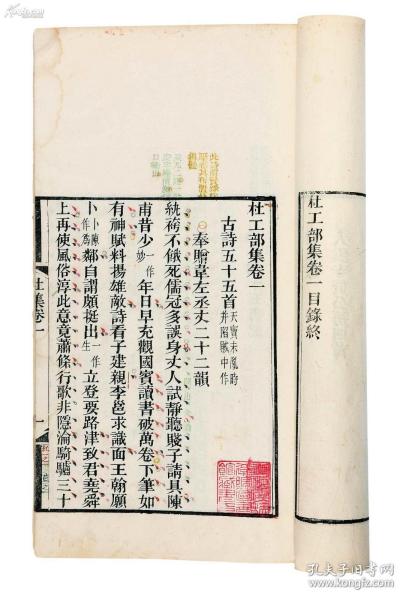 杜工部集卷一目錄終
杜工部集卷一
古詩五十五首 天寶未亂時并陷賊中作
奉贈韋左丞丈二十二韻
紈袴不餓死儒冠多誤身丈人試靜聽賤子請具陳
甫昔少一作妙年日早充觀國賓讀書破萬卷下筆如
有神賦料揚雄敵詩看子建親李邕求識面王翰願
卜一作為鄰自謂頗挺出一作生立登要路津致君堯舜
上再使風俗淳此意竟蕭條行歌非隱淪騎驢三十
杜集卷一
一
孔夫子旧书网